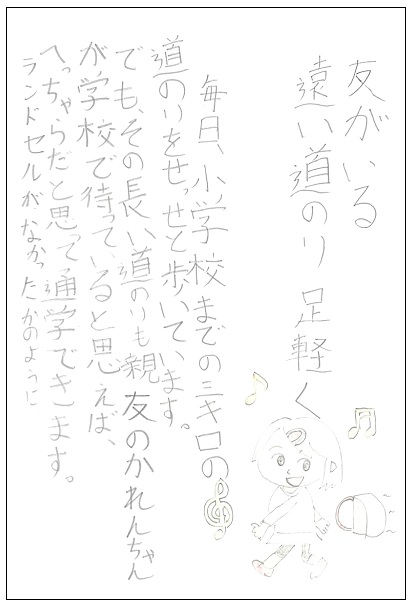 友がいる
遠い道のり 足軽く
毎日、小学校までの三キロの
道のりをせっせと歩いています。
でも、その長い道のりも親友のかれんちゃん
が学校で待っていると思えば、
へっちゃらだと思って通学できます。
ランドセルがなかったかのように